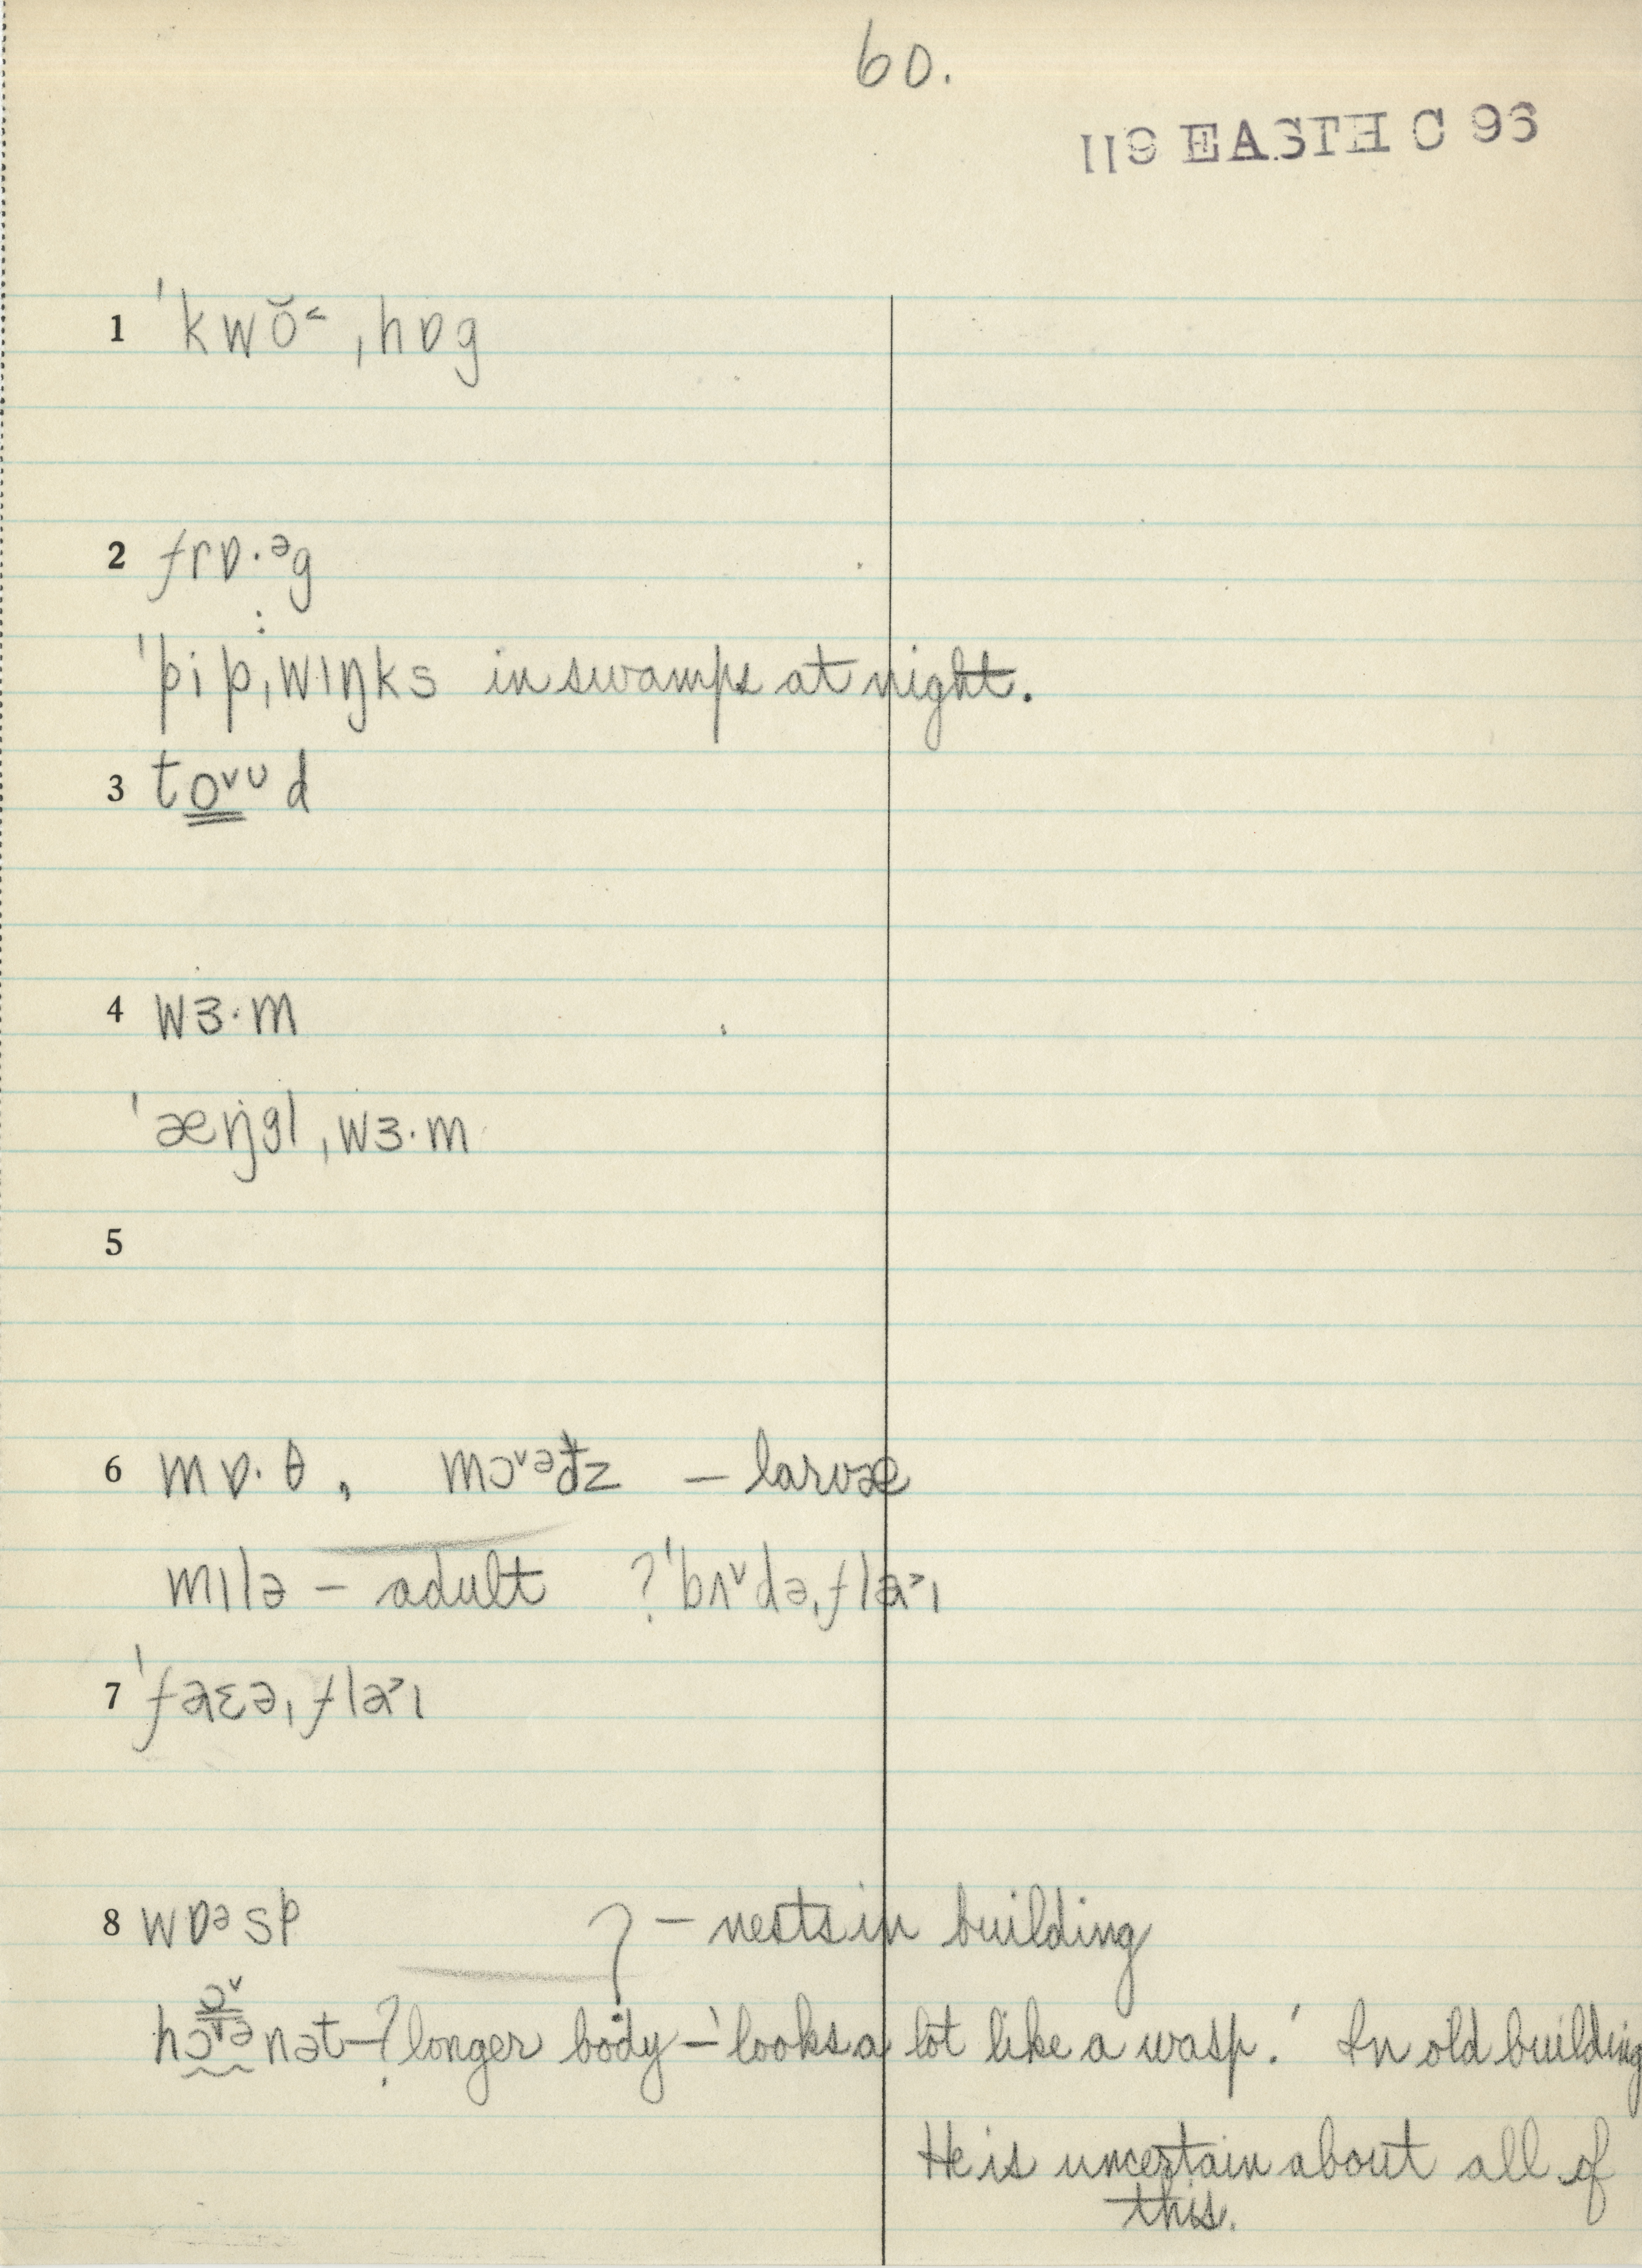 60.
119 EASTH C 93
1 ˈkwŏ˂ˌhɒg
2 frɒ·ᵊg
ˈpi:pˌwɪŋks in swamps at night.
3 to̳ᵛᶸd
4 wɜ·m
ˈæŋglˌwɜ·m
5
6 mɒ·θ, mɔᵛᵊđz – larvæ
mɪlə – adult ? ˈbʌᵛdəˌfla˃ɪ
7 ˈfaɛəˌfla˃ɪ
8 wɒᵊsp ? – nests in building
hɔᵛənət – ? longer body – 'looks a lot like a wasp.' In old building
He is uncertain about all of
this.